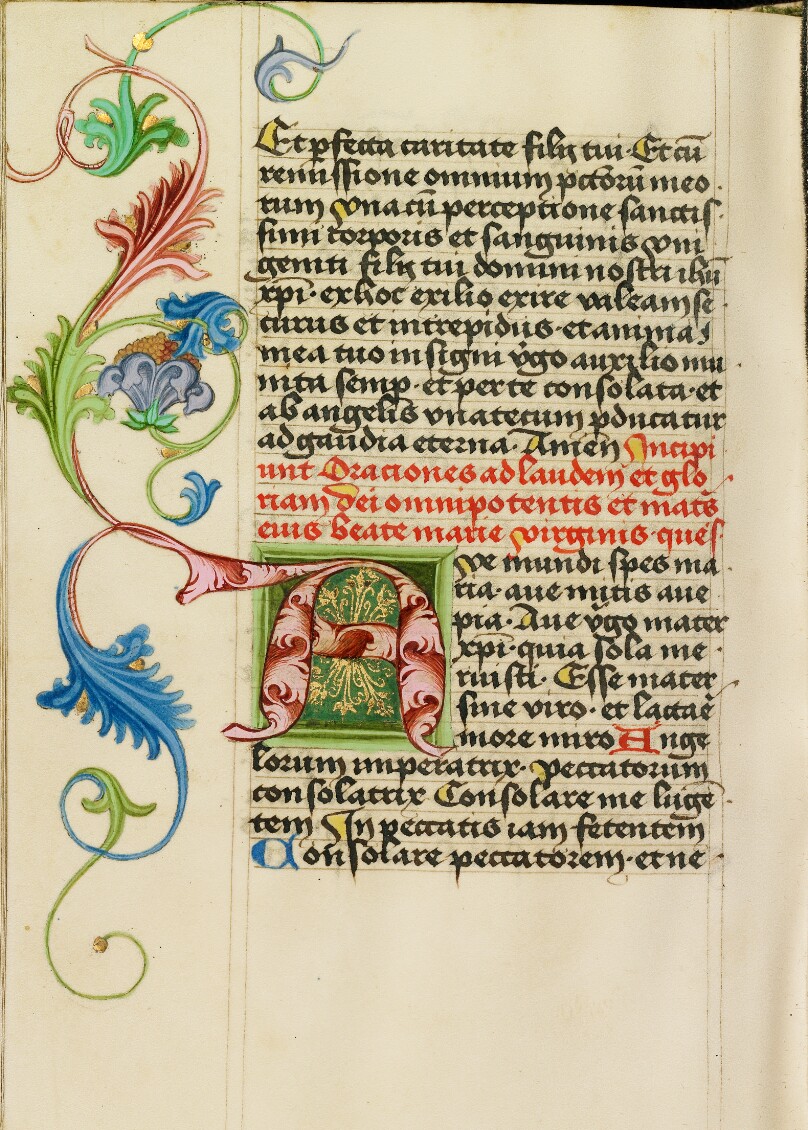 Et ꝑfecta caritate filij tui · Et cū
remissione omnium pctōrū meo
rum vna cū perceptione sanctis
simi corporis et sanguinis vni
geniti filij tui domini nostri ihū
xp̄i · ex hoc exilio exire valeam se
curus et intrepidus · et anima
mea tuo insigni v̄go auxilio mu
nita semp̄ · et per te consolata · et
ab angelis vna tecum ꝑducatur
ad gaudia eterna · Amen Incipi
unt Orationes ad laudem et glo
riam dei omnipotentis et matͥs
euis beate marie virginis · ques
Ave mundi spes ma
ria · aue mitis aue
pia · Aue v̄go mater
xp̄i · quia sola me
ruisti · Esse mater
sine viro · et lactāe
more miro Ange
lorum imperatrix · peccatorum
consolatrix Consolare me lugē
tem · In peccatis iam fetentem
Consolare peccatorem · et ne